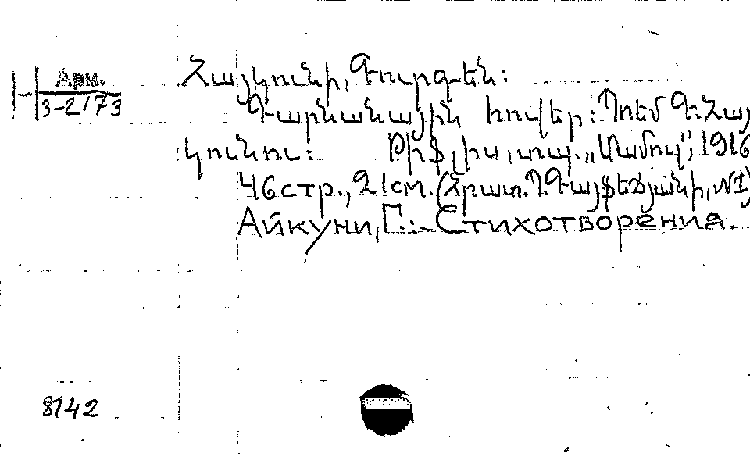 Арм.
3-2173
Հայկունի, Գուրգեն:
Գարնանային հովեր: Պոեմ Գ. Հայ
կունու: Թիֆլիս, տպ. „Մամուլ", 1916
46 стр., 21 см. (Հրատ. Պ. Գայֆեճյանի, №1)
Айкуни, Г.:- Стихотворения.
8142